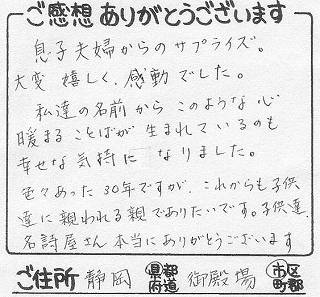 ご感想ありがとうございます
息子夫婦からのサプライズ。
大変嬉しく、感動でした。
私達の名前からこのような心
暖まることばが生まれているのも
幸せな気持になりました。
色々あった30年ですが、これからも子供
達に親われる親でありたいです。子供達、
名詩屋さん本当にありがとうございます
ご住所 静岡 都道府県 御殿場 市区町郡